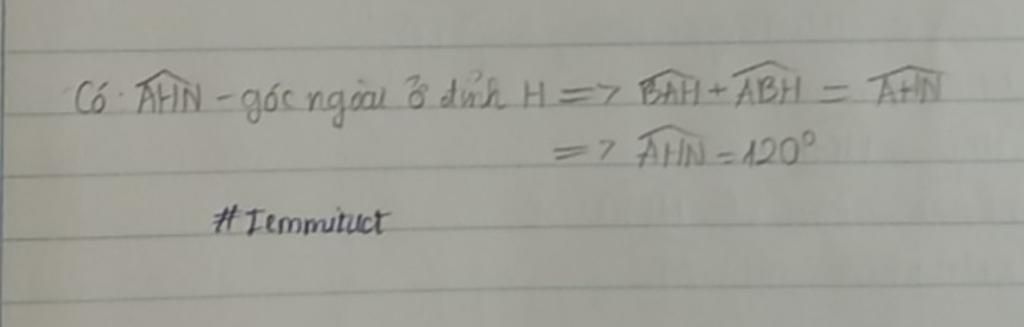 Có: \widehat{AHN} - góc ngoài ở đỉnh H => \widehat{BAH} + \widehat{ABH} = \widehat{AHN}
=> \widehat{AHN} = 120°
#Iemmituct